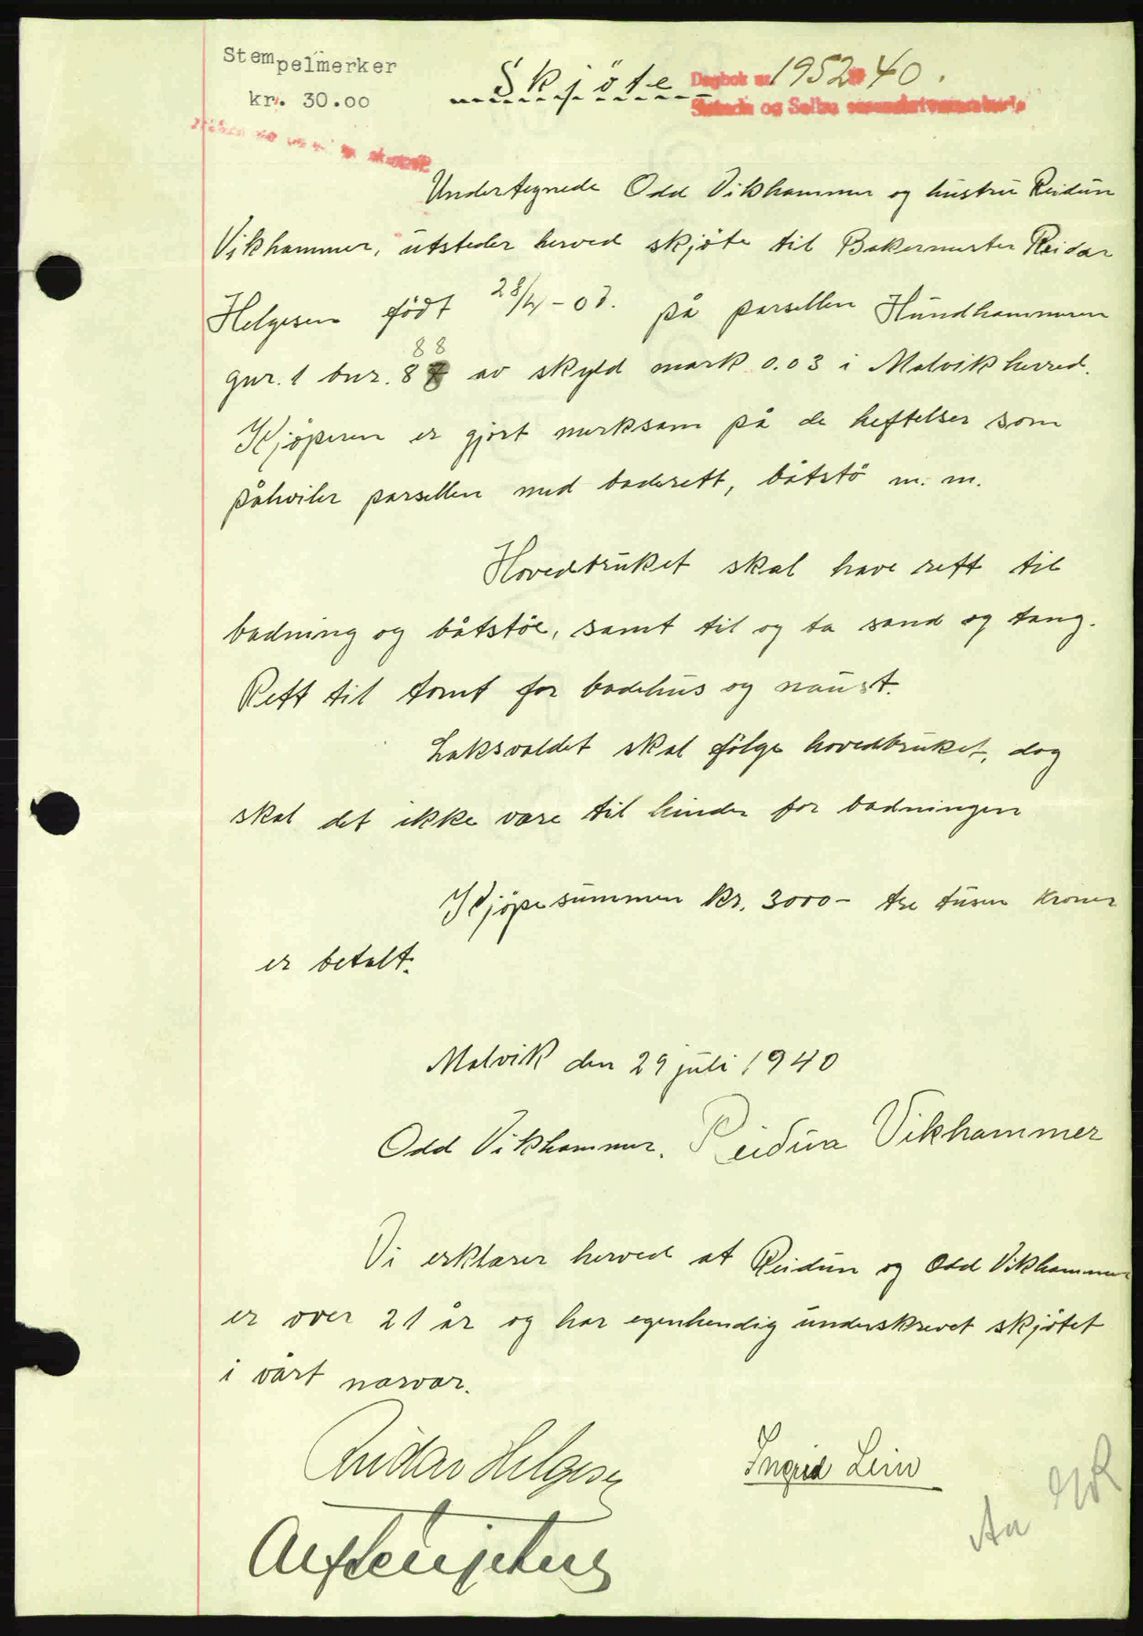 Stempelmerker
kr. 30.00
Skjöte
Dagbok nr. 1952 40.
og Selbu sorenskriverembede
Undertegnede Odd Vikhammer og hustru Reidun
Vikhammer, utsteder herved skjöte til Bakermester Reidar
Helgesen födt 28/4-03. på parsellen Hundhammeren
88
gnr. 1 bnr. 87 av skyld mark 0.03 i Malvik herred.
Kjöperen er gjort merksam på de heftelser som
påhviler parsellen med baderett, båtstö m. m.
Hovedbruket skal have rett til
badning og båtstöe, samt til og ta sand og tang.
Rett til tomt for badehus og naust.
Laksvaldet skal fölge hovedbruket, dog
skal det ikke være til hinder for badningen
Kjöpesummen kr. 3000- tre tusen kroner
er betalt.
Malvik den 29 juli 1940
Odd Vikhammer. Reidun Vikhammer
Vi erklærer herved at Reidun og Odd Vikhammer
er over 21 år og har egenhendig underskrevet skjötet
i vårt nærvær.
Reidar Helgesen
Ingrid Lein